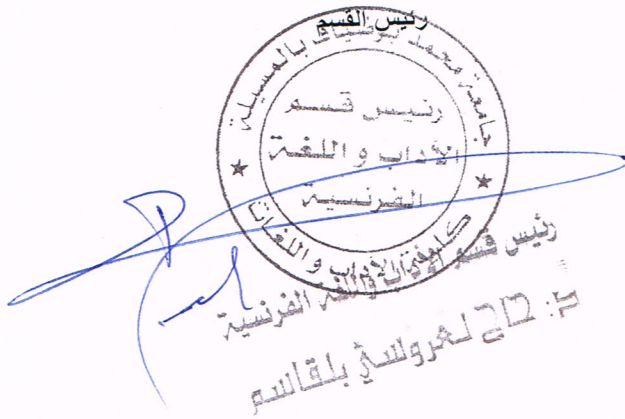 رئيس القسم
جامعة محمد بوضياف بالمسيلة
رئيس قسم
الآداب و اللغة
الفرنسية
كلية الآداب و اللغات
رئيس قسم الآداب واللغة الفرنسية
د: حاج لعروسي بلقاسم